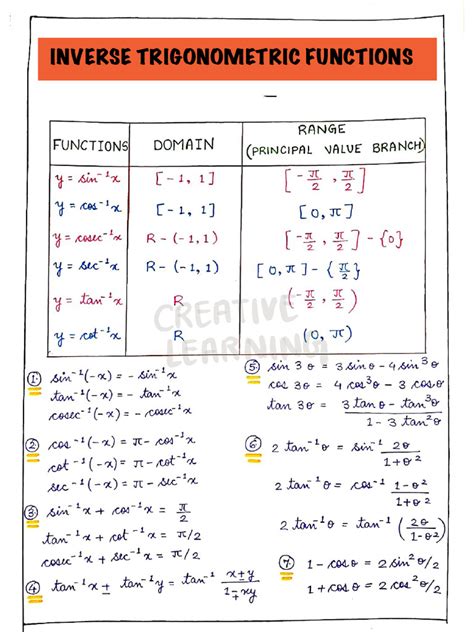 INVERSE TRIGONOMETRIC FUNCTIONS
FUNCTIONS DOMAIN RANGE (PRINCIPAL VALUE BRANCH)
y = sin⁻¹x [-1, 1] [-π/2, π/2]
y = cos⁻¹x [-1, 1] [0, π]
y = cosec⁻¹x R-(-1,1) [-π/2, π/2] - {0}
y = sec⁻¹x R-(-1,1) [0, π] - {π/2}
y = tan⁻¹x R (-π/2, π/2)
y = cot⁻¹x R (0, π)
CREATIVE
LEARNING
① sin⁻¹(-x) = - sin⁻¹x
tan⁻¹(-x) = - tan⁻¹x
cosec⁻¹(-x) = - cosec⁻¹x
② cos⁻¹(-x) = π - cos⁻¹x
cot⁻¹(-x) = π - cot⁻¹x
sec⁻¹(-x) = π - sec⁻¹x
③ sin⁻¹x + cos⁻¹x = π/2
tan⁻¹x + cot⁻¹x = π/2
cosec⁻¹x + sec⁻¹x = π/2
④ tan⁻¹x ± tan⁻¹y = tan⁻¹ x±y/1∓xy
⑤ sin 3θ = 3 sin θ - 4 sin³θ
cos 3θ = 4 cos³θ - 3 cos θ
tan 3θ = 3 tan θ - tan³θ / 1 - 3 tan²θ
⑥ 2 tan⁻¹θ = sin⁻¹ 2θ/1+θ²
2 tan⁻¹θ = cos⁻¹ 1-θ²/1+θ²
2 tan⁻¹θ = tan⁻¹ (2θ/1-θ²)
⑦ 1 - cos θ = 2 sin²θ/2
1 + cos θ = 2 cos²θ/2